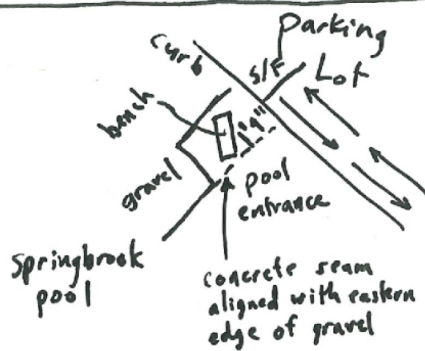 Parking
Lot
curb
S/F
bench
9"
gravel
pool
entrance
Springbrook
pool
concrete seam
aligned with eastern
edge of gravel